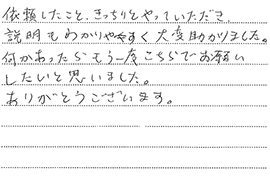 依頼したこと、きっちりとやっていただき、
説明もわかりやすく大変助かりました。
何かあったらもう一度こちらでお願い
したいと思いました。
ありがとうございます。